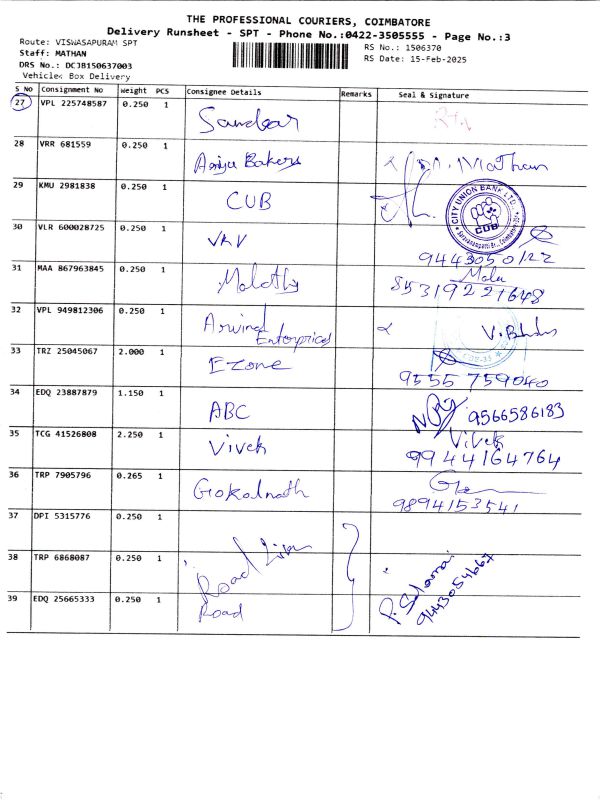 THE PROFESSIONAL COURIERS, COIMBATORE
Delivery Runsheet - SPT - Phone No.:0422-3505555 - Page No.:3
Route: VISWASAPURAM SPT
Staff: MATHAN
DRS No.: DCJB150637003
Vehicle: Box Delivery
RS No.: 1506370
RS Date: 15-Feb-2025
S NO Consignment No Weight PCS Consignee Details Remarks Seal & Signature
27 VPL 225748587 0.250 1 Sundear
28 VRR 681559 0.250 1 Bakers Mathan
29 KMU 2981838 0.250 1 CUB CITY UNION BANK LTD. CUB
30 VLR 600028725 0.250 1 VKV 9443050122
31 MAA 867963845 0.250 1 Malathy Mala 85319221648
32 VPL 949812306 0.250 1 Arvind Enterprices
33 TRZ 25045067 2.000 1 Ezone 9555 759040
34 EDQ 23887879 1.150 1 ABC 9566586183
35 TCG 41526808 2.250 1 Vivek Vivek 99444164764
36 TRP 7905796 0.265 1 Gokalnath 9894153541
37 DPI 5315776 0.250 1
38 TRP 6868087 0.250 1 Road
39 EDQ 25665333 0.250 1 Road 9443054667